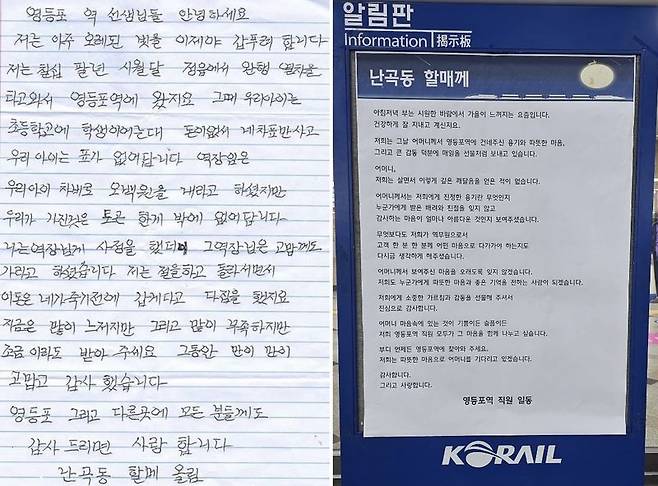 영등포 역 선생님들 안녕하세요
저는 아주 오래된 빚을 이제야 갚푸려 합니다
저는 칠십 팔년 시월달 정읍에서 완행 열차을
타고와서 영등포역에 왔지요 그때 우리아이는
초등학고에 학생이어는대 돈이없서 내차표만사고
우리아이는 표가 없어답니다 역장님은
우리아이 차비로 오백원을 내라고 하셨지만
우리가 가진것은 토큰 한개 밖에 없어답니다
나는역장님게 사정을 했더니 그역장님은 고맙께도
가라고 하셨습니다 저는 절을하고 돌라서면서
이돈은 내가죽기전에 갑게다고 다짐을 했지요
지금은 많이 느저지만 그리고 많이 부족하지만
조금 이라도 받아 주세요 그동안 만이 만이
고맙고 감사 했습니다
영등포 그리고 다른곳에 모든 분들께도
감사 드리면 사랑 합니다
난곡동 할께 올림
알림판
Information 揭示板
난곡동 할매께
아침저녁 부는 시원한 바람에서 가을이 느껴지는 요즘입니다.
건강하게 잘 지내고 계신지요.
저희는 그날 어머니께서 영등포역에 건네주신 용기와 따뜻한 마음,
그리고 큰 감동 덕분에 매일을 선물처럼 보내고 있습니다.
어머니,
저희는 살면서 이렇게 깊은 깨달음을 얻은 적이 없습니다.
어머니께서는 저희에게 진정한 용기란 무엇인지
누군가에게 받은 배려와 친절을 잊지 않고
감사하는 마음이 얼마나 아름다운 것인지 보여주셨습니다.
무엇보다도 저희가 역무원으로서
고객 한 분 한 분께 어떤 마음으로 다가가야 하는지도
다시금 생각하게 해주셨습니다.
어머니께서 보여주신 마음을 오래도록 잊지 않겠습니다.
저희도 누군가에게 따뜻한 마음과 좋은 기억을 전하는 사람이 되겠습니다.
저희에게 소중한 가르침과 감동을 선물해 주셔서
진심으로 감사합니다.
어머니 마음속에 있는 것이 기쁨이든 슬픔이든
저희 영등포역 직원 모두가 그 마음을 함께 나누고 싶습니다.
부디 언제든 영등포역에 찾아와 주세요.
저희는 따뜻한 마음으로 어머니를 기다리고 있겠습니다.
감사합니다.
그리고 사랑합니다.
영등포역 직원 일동
KORAIL